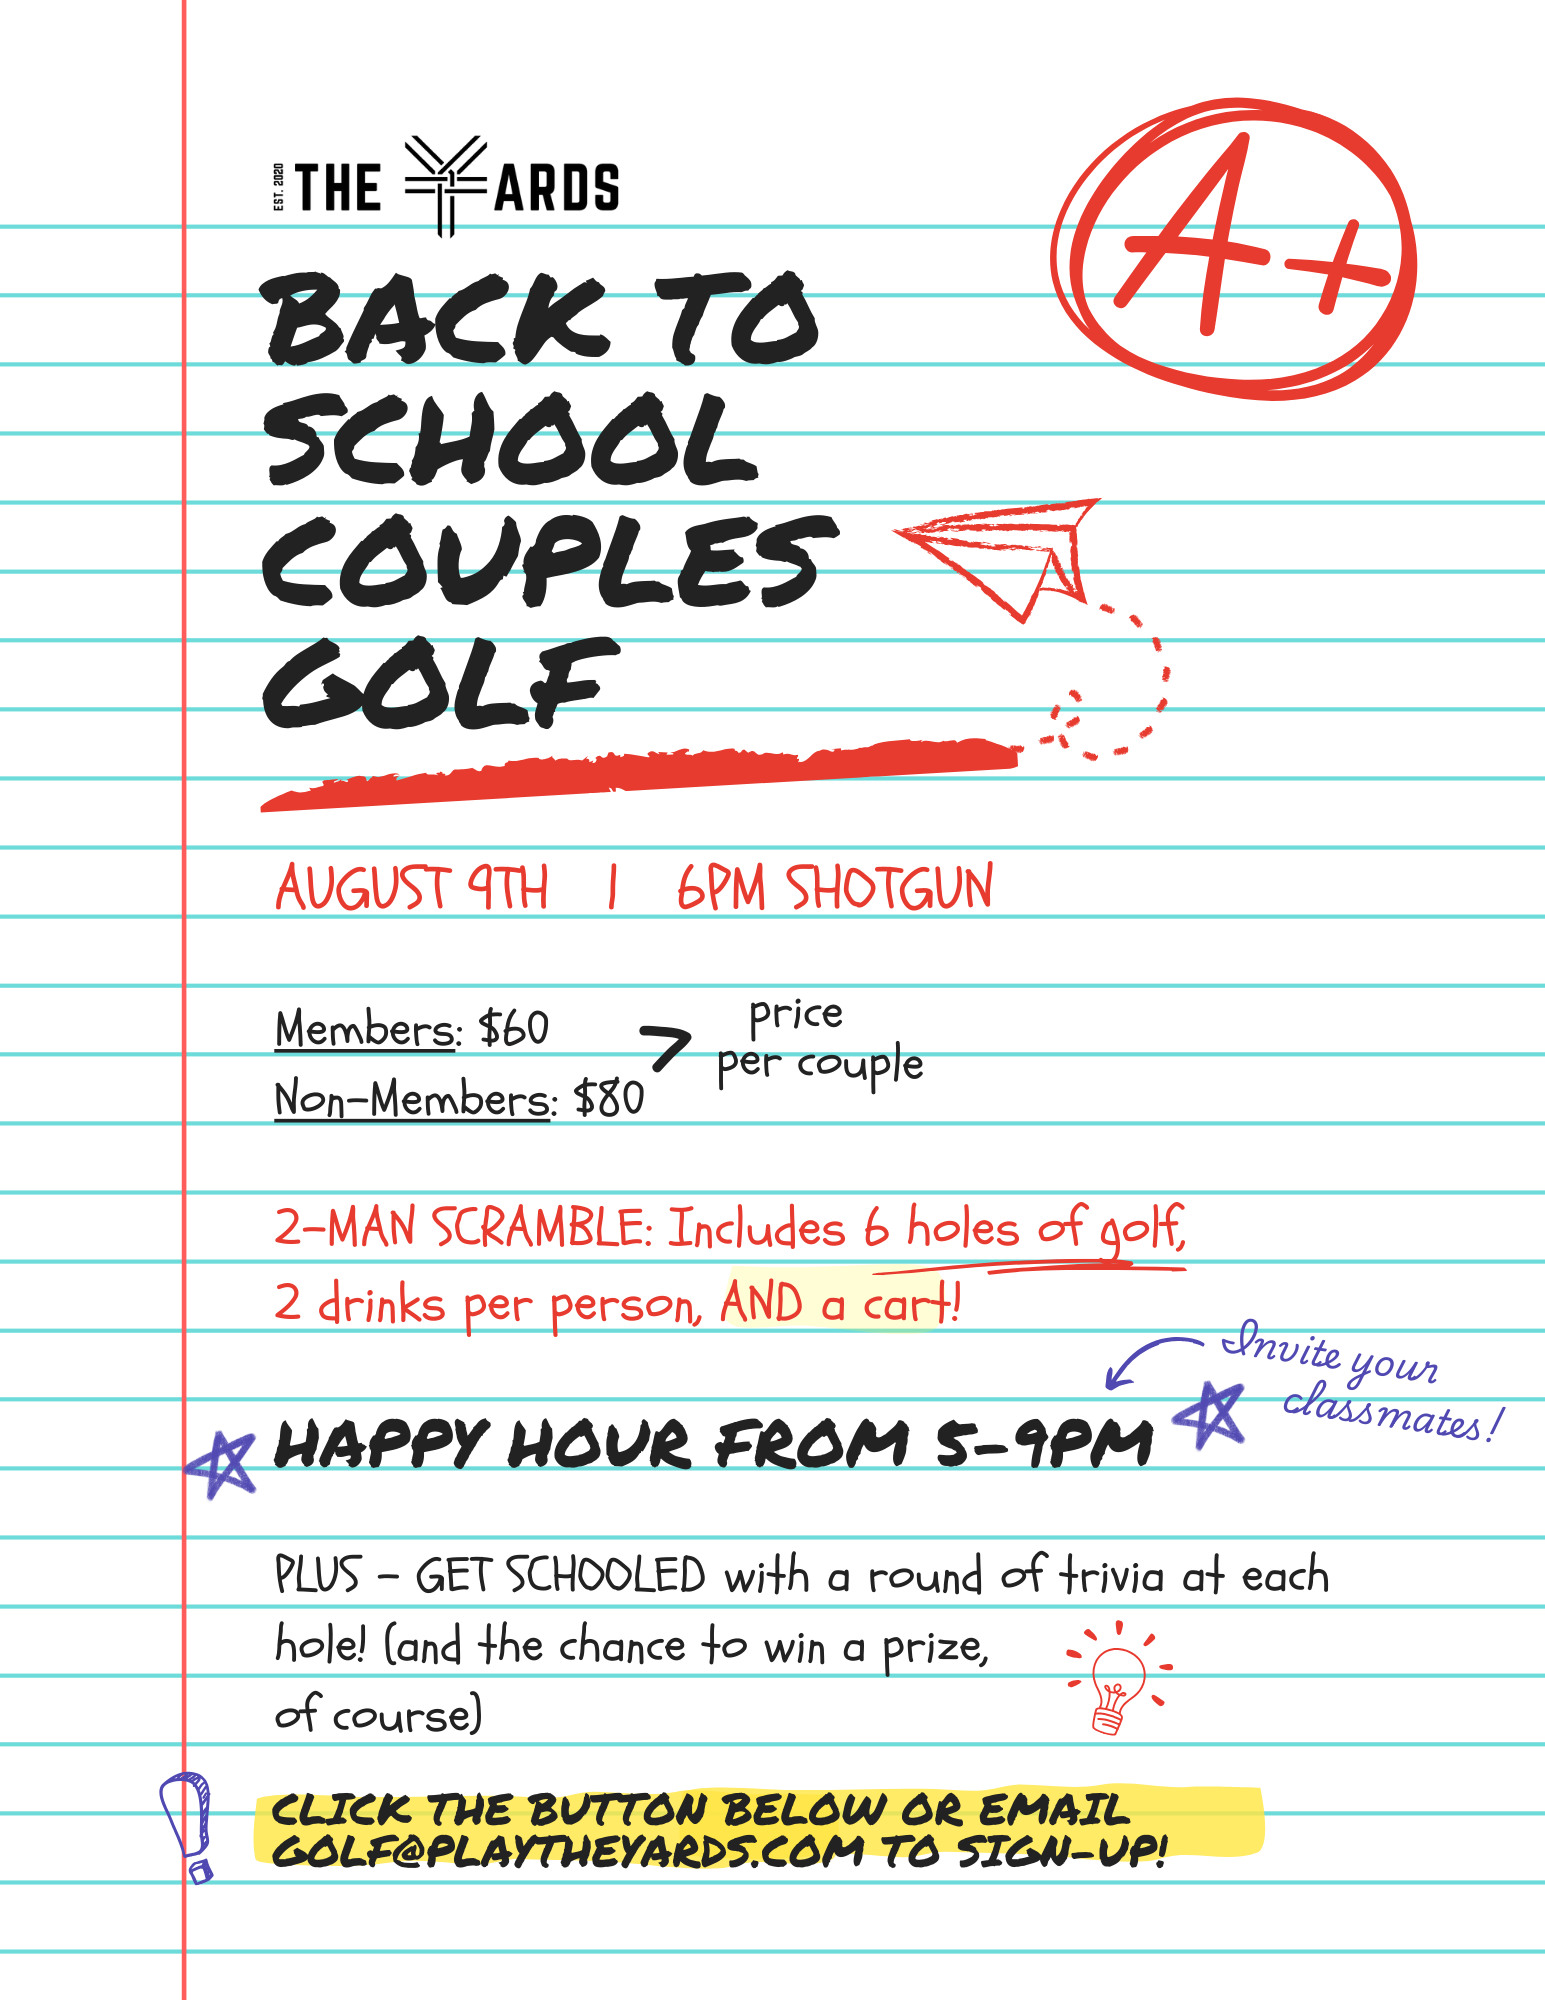 EST. 2020 THE YARDS
A+
BACK TO
SCHOOL
COUPLES
GOLF
AUGUST 9TH | 6PM SHOTGUN
Members: $60
Non-Members: $80
> price
per couple
2-MAN SCRAMBLE: Includes 6 holes of golf,
2 drinks per person, AND a cart!
Invite your
classmates!
HAPPY HOUR FROM 5-9PM
PLUS - GET SCHOOLED with a round of trivia at each
hole! (and the chance to win a prize,
of course)
CLICK THE BUTTON BELOW OR EMAIL
GOLF@PLAYTHEYARDS.COM TO SIGN-UP!